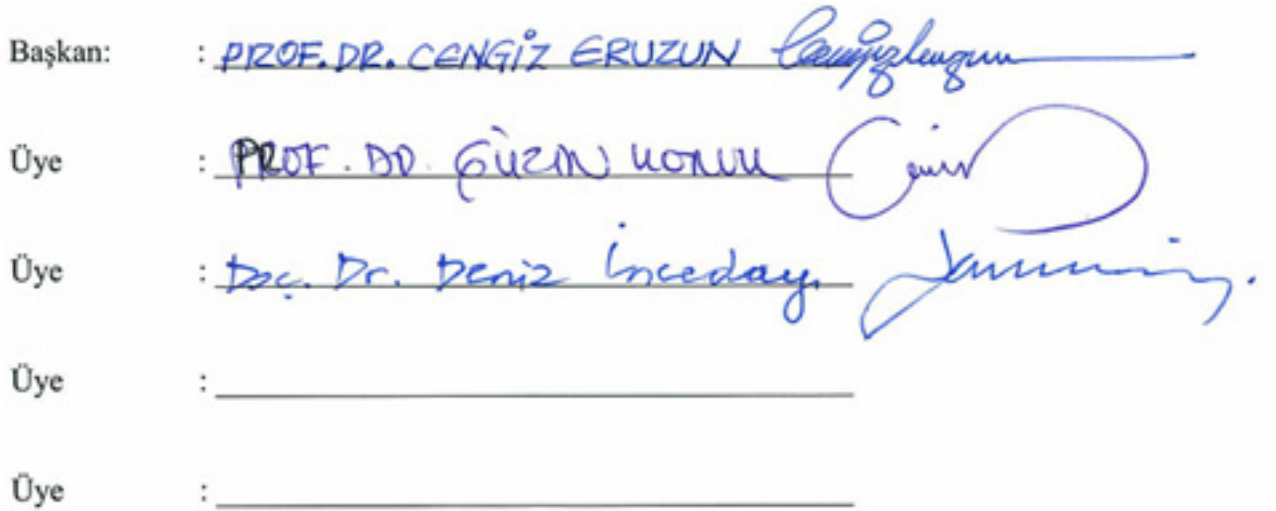 Başkan: : PROF. DR. CENGİZ ERUZUN
Üye : PROF. DR. GÜZİN KONUK
Üye : Doç. Dr. Deniz İncedayı
Üye :
Üye :